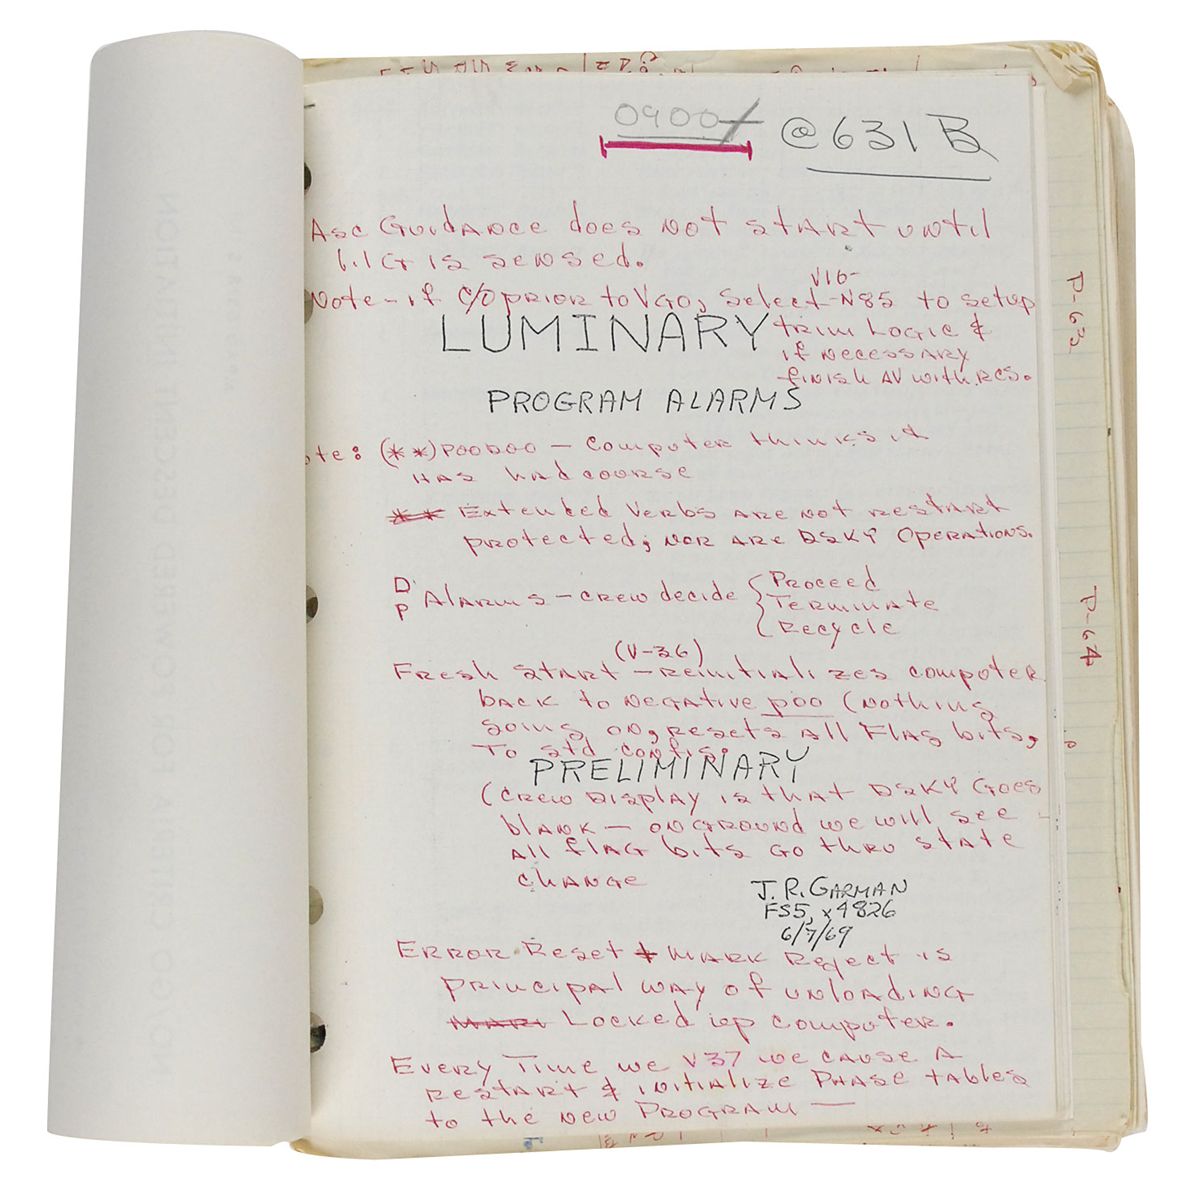 0900
@631 B
Asc Guidance does not start until
1.1 G is sensed.
V16-
Note - if C/O prior to VGO, select N85 to setup
LUMINARY
trim Logic &
if necessary
finish ΔV with RCS.
PROGRAM ALARMS
ote: (**) POODOO - computer thinks it
has had course
Extended Verbs are not restart
protected; nor are DSKY Operations.
D
P Alarms - crew decide { Proceed
Terminate
Recycle
(V-36)
Fresh Start - reinitializes computer
back to negative poo (nothing
going on, resets all Flag bits,
to std config.
PRELIMINARY
(crew display is that DSKY Goes
blank - on ground we will see
all flag bits go thru state
change
J. R. GARMAN
FS5, x4826
6/7/69
Error Reset + Mark Reject is
principal way of unloading
Locked up computer.
Every Time we V37 we cause a
restart & initialize Phase tables
to the new Program —
P-63
P-64
NO/GO CRITERIA FOR POWERED DESCENT INITIATION